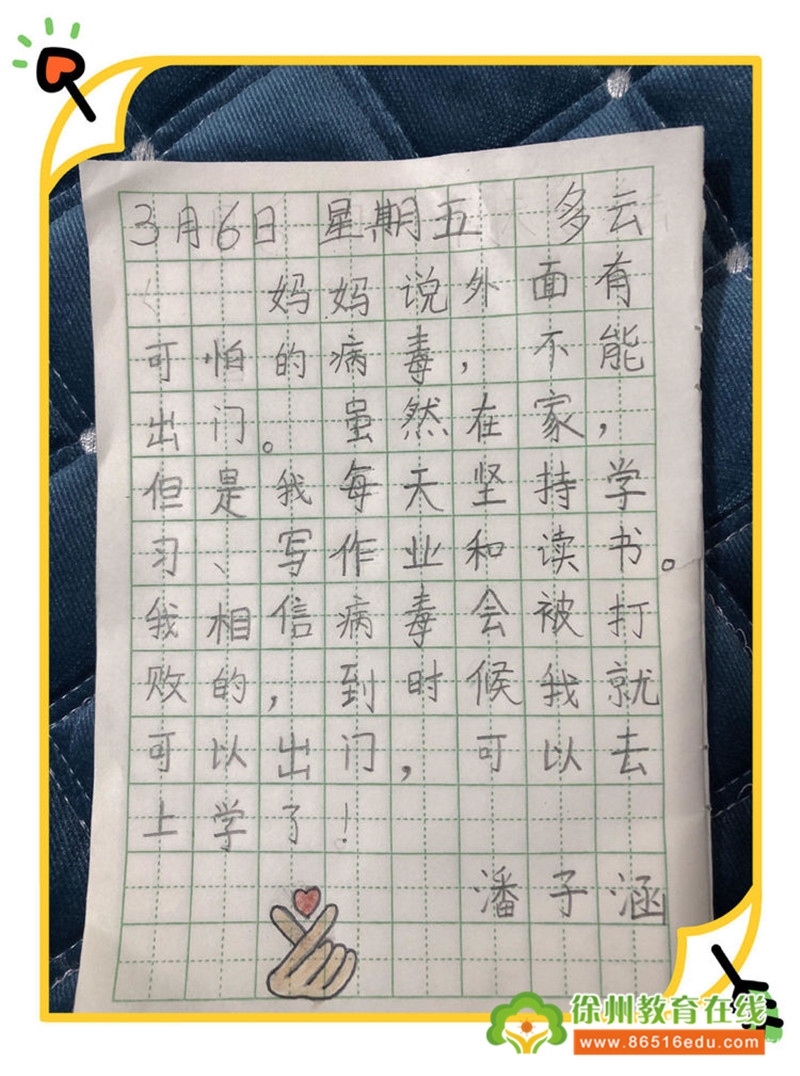 3月6日 星期五 多云
妈妈说外面有
可怕的病毒，不能
出门。虽然在家，
但是我每天坚持学
习、写作业和读书。
我相信病毒会被打
败的，到时候我就
可以出门，可以去
上学了！
潘子涵
徐州教育在线
www.86516edu.com